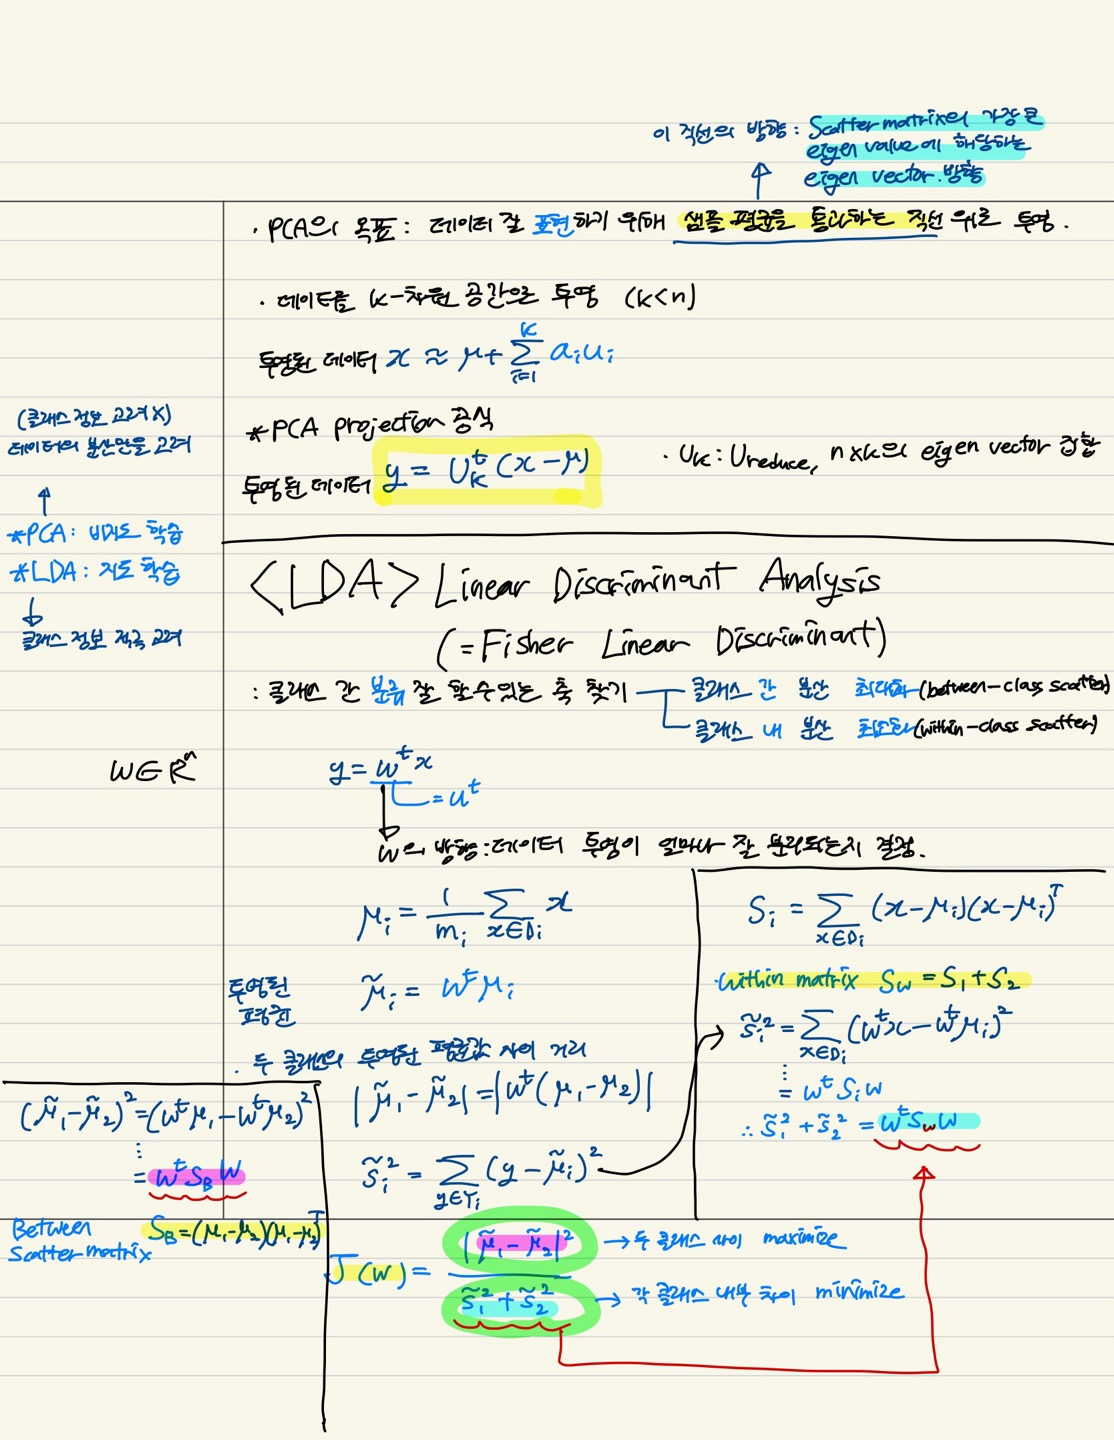 이 직선의 방향 : Scatter matrix의 가장 큰
eigen value에 해당하는
eigen vector 방향
· PCA의 목표 : 데이터 잘 표현하기 위해 샘플 평균을 통과하는 직선 위로 투영.
· 데이터를 k-차원 공간으로 투영 (k<n)
투영된 데이터 x ≈ μ + Σ_{i=1}^{k} a_i u_i
(클래스 정보 고려 X)
데이터의 분산만을 고려
*PCA : 비지도 학습
*LDA : 지도 학습
클래스 정보 적극 고려
*PCA projection 공식
투영된 데이터 y = U_k^t (x-μ)
· U_k : U_reduce, n×k의 eigen vector 집합
<LDA> Linear Discriminant Analysis
(=Fisher Linear Discriminant)
: 클래스 간 분류 잘 할 수 있는 축 찾기
클래스 간 분산 최대화 (between-class scatter)
클래스 내 분산 최소화 (within-class scatter)
w∈R^n
y = w^t x
= u^t
w의 방향 : 데이터 투영이 얼마나 잘 분리되는지 결정.
μ_i = 1/m_i Σ_{x∈D_i} x
투영된
평균
μ̃_i = w^t μ_i
· 두 클래스의 투영된 평균값 사이 거리
|μ̃_1 - μ̃_2| = |w^t(μ_1-μ_2)|
s̃_i^2 = Σ_{y∈Y_i} (y-μ̃_i)^2
S_i = Σ_{x∈D_i} (x-μ_i)(x-μ_i)^T
·within matrix S_w = S_1+S_2
s̃_i^2 = Σ_{x∈D_i} (w^t x - w^t μ_i)^2
⋮
= w^t S_i w
∴ s̃_1^2 + s̃_2^2 = w^t S_w w
(μ̃_1-μ̃_2)^2 = (w^t μ_1 - w^t μ_2)^2
⋮
= w^t S_B w
Between
Scatter matrix
S_B = (μ_1-μ_2)(μ_1-μ_2)^T
J(w) = |μ̃_1 - μ̃_2|^2 / s̃_1^2 + s̃_2^2
→ 두 클래스 사이 maximize
→ 각 클래스 내부 차이 minimize